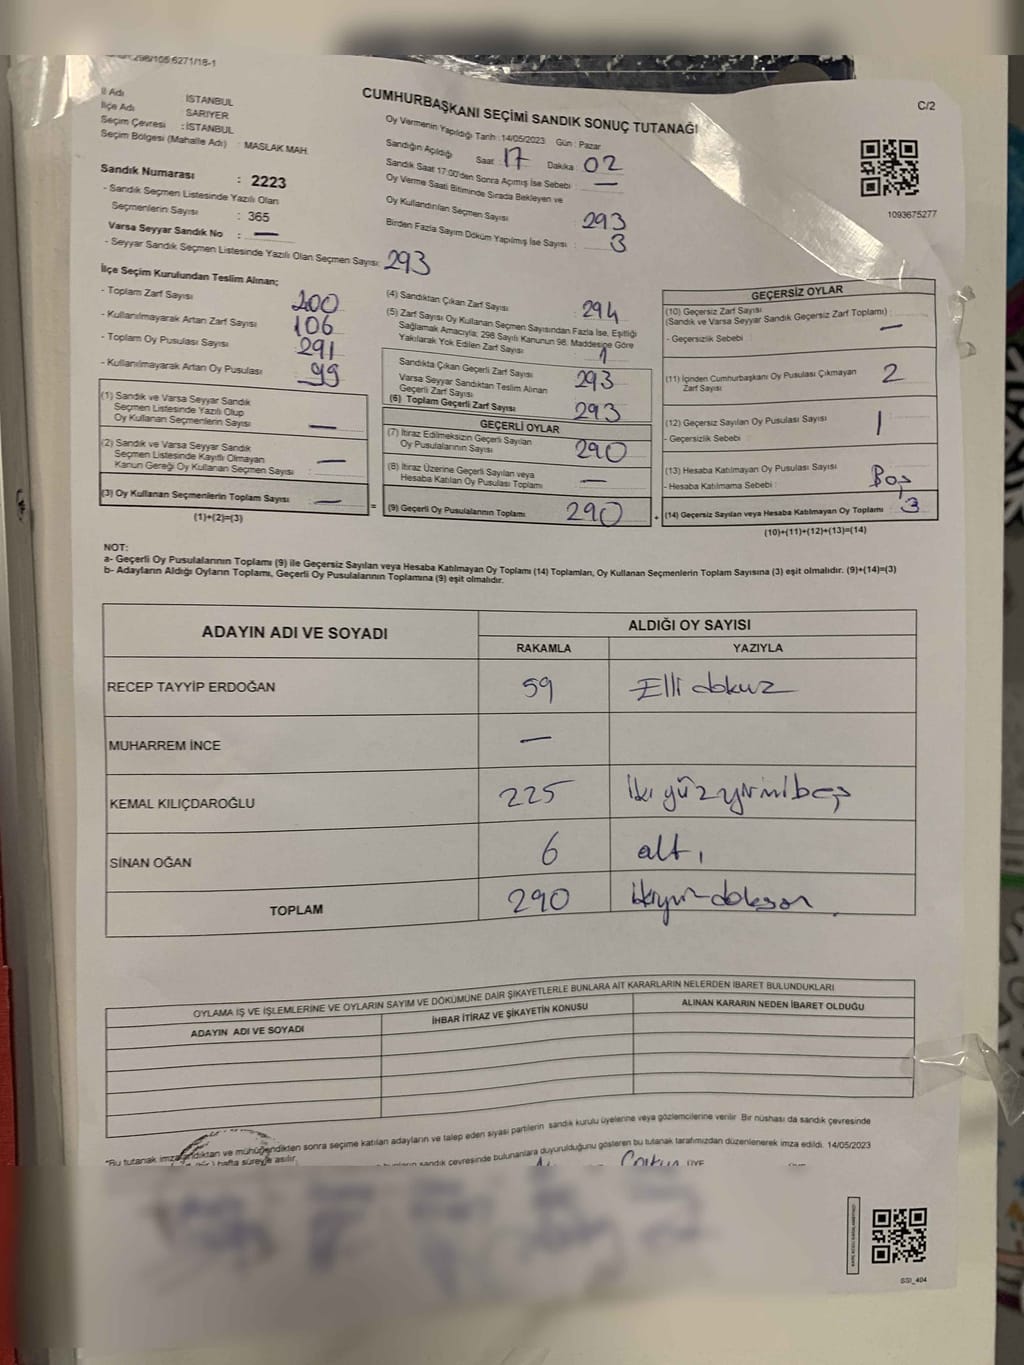 298/105 6271/18-1
C/2
CUMHURBAŞKANI SEÇİMİ SANDIK SONUÇ TUTANAĞI
İl Adı İSTANBUL
İlçe Adı SARIYER
Seçim Çevresi : İSTANBUL
Seçim Bölgesi (Mahalle Adı) : MASLAK MAH.
Sandık Numarası : 2223
- Sandık Seçmen Listesinde Yazılı Olan
Seçmenlerin Sayısı : 365
Varsa Seyyar Sandık No : —
- Seyyar Sandık Seçmen Listesinde Yazılı Olan Seçmen Sayısı: 293
Oy Vermenin Yapıldığı Tarih : 14/05/2023 Gün : Pazar
Sandığın Açıldığı Saat : 17 Dakika 02
Sandık Saat 17:00'den Sonra Açımış İse Sebebi : —
Oy Verme Saati Bitiminde Sırada Bekleyen ve
Oy Kullandırılan Seçmen Sayısı 293
Birden Fazla Sayım Döküm Yapılmış İse Sayısı : 3
1093675277
İlçe Seçim Kurulundan Teslim Alınan;
- Toplam Zarf Sayısı 200
- Kullanılmayarak Artan Zarf Sayısı 106
- Toplam Oy Pusulası Sayısı 291
- Kullanılmayarak Artan Oy Pusulası 99
(1) Sandık ve Varsa Seyyar Sandık
Seçmen Listesinde Yazılı Olup
Oy Kullanan Seçmenlerin Sayısı —
(2) Sandık ve Varsa Seyyar Sandık
Seçmen Listesinde Kayıtlı Olmayan
Kanun Gereği Oy Kullanan Seçmen Sayısı —
(3) Oy Kullanan Seçmenlerin Toplam Sayısı —
(1)+(2)=(3)
(4) Sandıktan Çıkan Zarf Sayısı 294
(5) Zarf Sayısı Oy Kullanan Seçmen Sayısından Fazla İse, Eşitliği
Sağlamak Amacıyla; 298 Sayılı Kanunun 98. Maddesine Göre
Yakılarak Yok Edilen Zarf Sayısı 1
Sandıkta Çıkan Geçerli Zarf Sayısı 293
Varsa Seyyar Sandıktan Teslim Alınan
Geçerli Zarf Sayısı
(6) Toplam Geçerli Zarf Sayısı 293
GEÇERLİ OYLAR
(7) İtiraz Edilmeksizin Geçerli Sayılan
Oy Pusulalarının Sayısı 290
(8) İtiraz Üzerine Geçerli Sayılan veya
Hesaba Katılan Oy Pusulası Toplamı —
= (9) Geçerli Oy Pusulalarının Toplamı 290
GEÇERSİZ OYLAR
(10) Geçersiz Zarf Sayısı
(Sandık ve Varsa Seyyar Sandık Geçersiz Zarf Toplamı) : —
- Geçersizlik Sebebi :
(11) İçinden Cumhurbaşkanı Oy Pusulası Çıkmayan 2
Zarf Sayısı
(12) Geçersiz Sayılan Oy Pusulası Sayısı 1
- Geçersizlik Sebebi
(13) Hesaba Katılmayan Oy Pusulası Sayısı
- Hesaba Katılmama Sebebi : Boş
+ (14) Geçersiz Sayılan veya Hesaba Katılmayan Oy Toplamı 3
(10)+(11)+(12)+(13)=(14)
NOT:
a- Geçerli Oy Pusulalarının Toplamı (9) ile Geçersiz Sayılan veya Hesaba Katılmayan Oy Toplamı (14) Toplamları, Oy Kullanan Seçmenlerin Toplam Sayısına (3) eşit olmalıdır. (9)+(14)=(3)
b- Adayların Aldığı Oyların Toplamı, Geçerli Oy Pusulalarının Toplamına (9) eşit olmalıdır.
ADAYIN ADI VE SOYADI ALDIĞI OY SAYISI
RAKAMLA YAZIYLA
RECEP TAYYİP ERDOĞAN 59 Elli dokuz
MUHARREM İNCE —
KEMAL KILIÇDAROĞLU 225 iki yüz yirmi beş
SİNAN OĞAN 6 altı
TOPLAM 290 ikiyüz doksan
OYLAMA İŞ VE İŞLEMLERİNE VE OYLARIN SAYIM VE DÖKÜMÜNE DAİR ŞİKAYETLERLE BUNLARA AİT KARARLARIN NELERDEN İBARET BULUNDUKLARI
ADAYIN ADI VE SOYADI İHBAR İTİRAZ VE ŞİKAYETİN KONUSU ALINAN KARARIN NEDEN İBARET OLDUĞU
*Bu tutanak imzalandıktan ve mühürlendikten sonra seçime katılan adayların ve talep eden siyasi partilerin sandık kurulu üyelerine veya gözlemcilerine verilir. Bir nüshası da sandık çevresinde
hafta süreyle asılır.
sandık çevresinde bulunanlara duyurulduğunu gösteren bu tutanak tarafımızdan düzenlenerek imza edildi. 14/05/2023
ÜYE
SSI_404